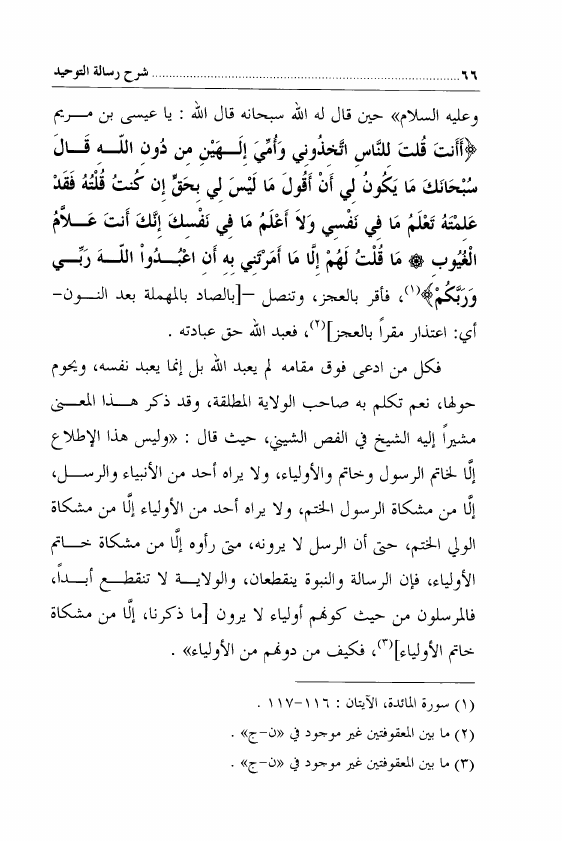 ٦٦ ........................................ شرح رسالة التوحيد
وعليه السلام» حين قال له الله سبحانه قال الله : يا عيسى بن مـــريم
﴿أَأَنتَ قُلتَ لِلنَّاسِ اتَّخِذُونِي وَأُمِّيَ إِلَـــهَيْنِ مِن دُونِ اللَّـــهِ قَـــالَ
سُبْحَانَكَ مَا يَكُونُ لِي أَنْ أَقُولَ مَا لَيْسَ لِي بِحَقٍّ إِن كُنتُ قُلْتُهُ فَقَدْ
عَلِمْتَهُ تَعْلَمُ مَا فِي نَفْسِي وَلاَ أَعْلَمُ مَا فِي نَفْسِكَ إِنَّكَ أَنتَ عَـــلاَّمُ
الْغُيُوبِ ۞ مَا قُلْتُ لَهُمْ إِلَّا مَا أَمَرْتَنِي بِهِ أَنِ اعْبُـــدُواْ اللَّـــهَ رَبِّـــي
وَرَبَّكُمْ﴾(١)، فأقر بالعجز، وتنصل –[بالصاد بالمهملة بعد النـــون–
أي: اعتذار مقراً بالعجز](٢)، فعبد الله حق عبادته .
فكل من ادعى فوق مقامه لم يعبد الله بل إنما يعبد نفسه، ويحوم
حولها، نعم تكلم به صاحب الولاية المطلقة، وقد ذكر هـــذا المعـــنى
مشيراً إليه الشيخ في الفص الشيثي، حيث قال : «وليس هذا الإطلاع
إلَّا لخاتم الرسول وخاتم والأولياء، ولا يراه أحد من الأنبياء والرســـل،
إلَّا من مشكاة الرسول الختم، ولا يراه أحد من الأولياء إلَّا من مشكاة
الولي الختم، حتى أن الرسل لا يرونه، متى رأوه إلَّا من مشكاة خـــاتم
الأولياء، فإن الرسالة والنبوة ينقطعان، والولايـــة لا تنقطـــع أبـــداً،
فالمرسلون من حيث كونهم أولياء لا يرون [ما ذكرنا، إلَّا من مشكاة
خاتم الأولياء](٣)، فكيف من دونهم من الأولياء» .
(١) سورة المائدة، الآيتان : ١١٦–١١٧ .
(٢) ما بين المعقوفتين غير موجود في «ن–ج» .
(٣) ما بين المعقوفتين غير موجود في «ن–ج» .